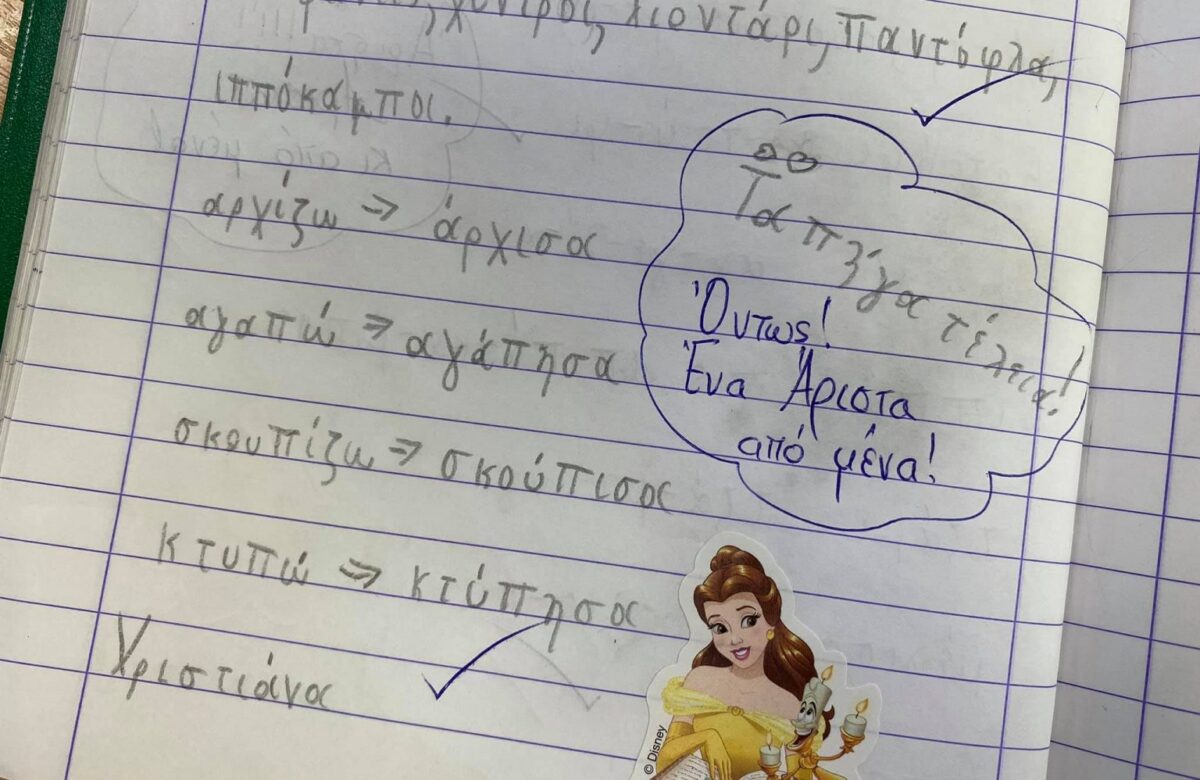 χοντρός, λιοντάρι, παντόφλα,
ιππόκαμποι.
αρχίζω ⇒ άρχισα
αγαπώ ⇒ αγάπησα
σκουπίζω ⇒ σκούπισα
κτυπώ ⇒ κτύπησα
Χριστιάνα
Τα πήγα τέλεια!
Όντως!
Ένα Άριστα
από μένα!
© Disney